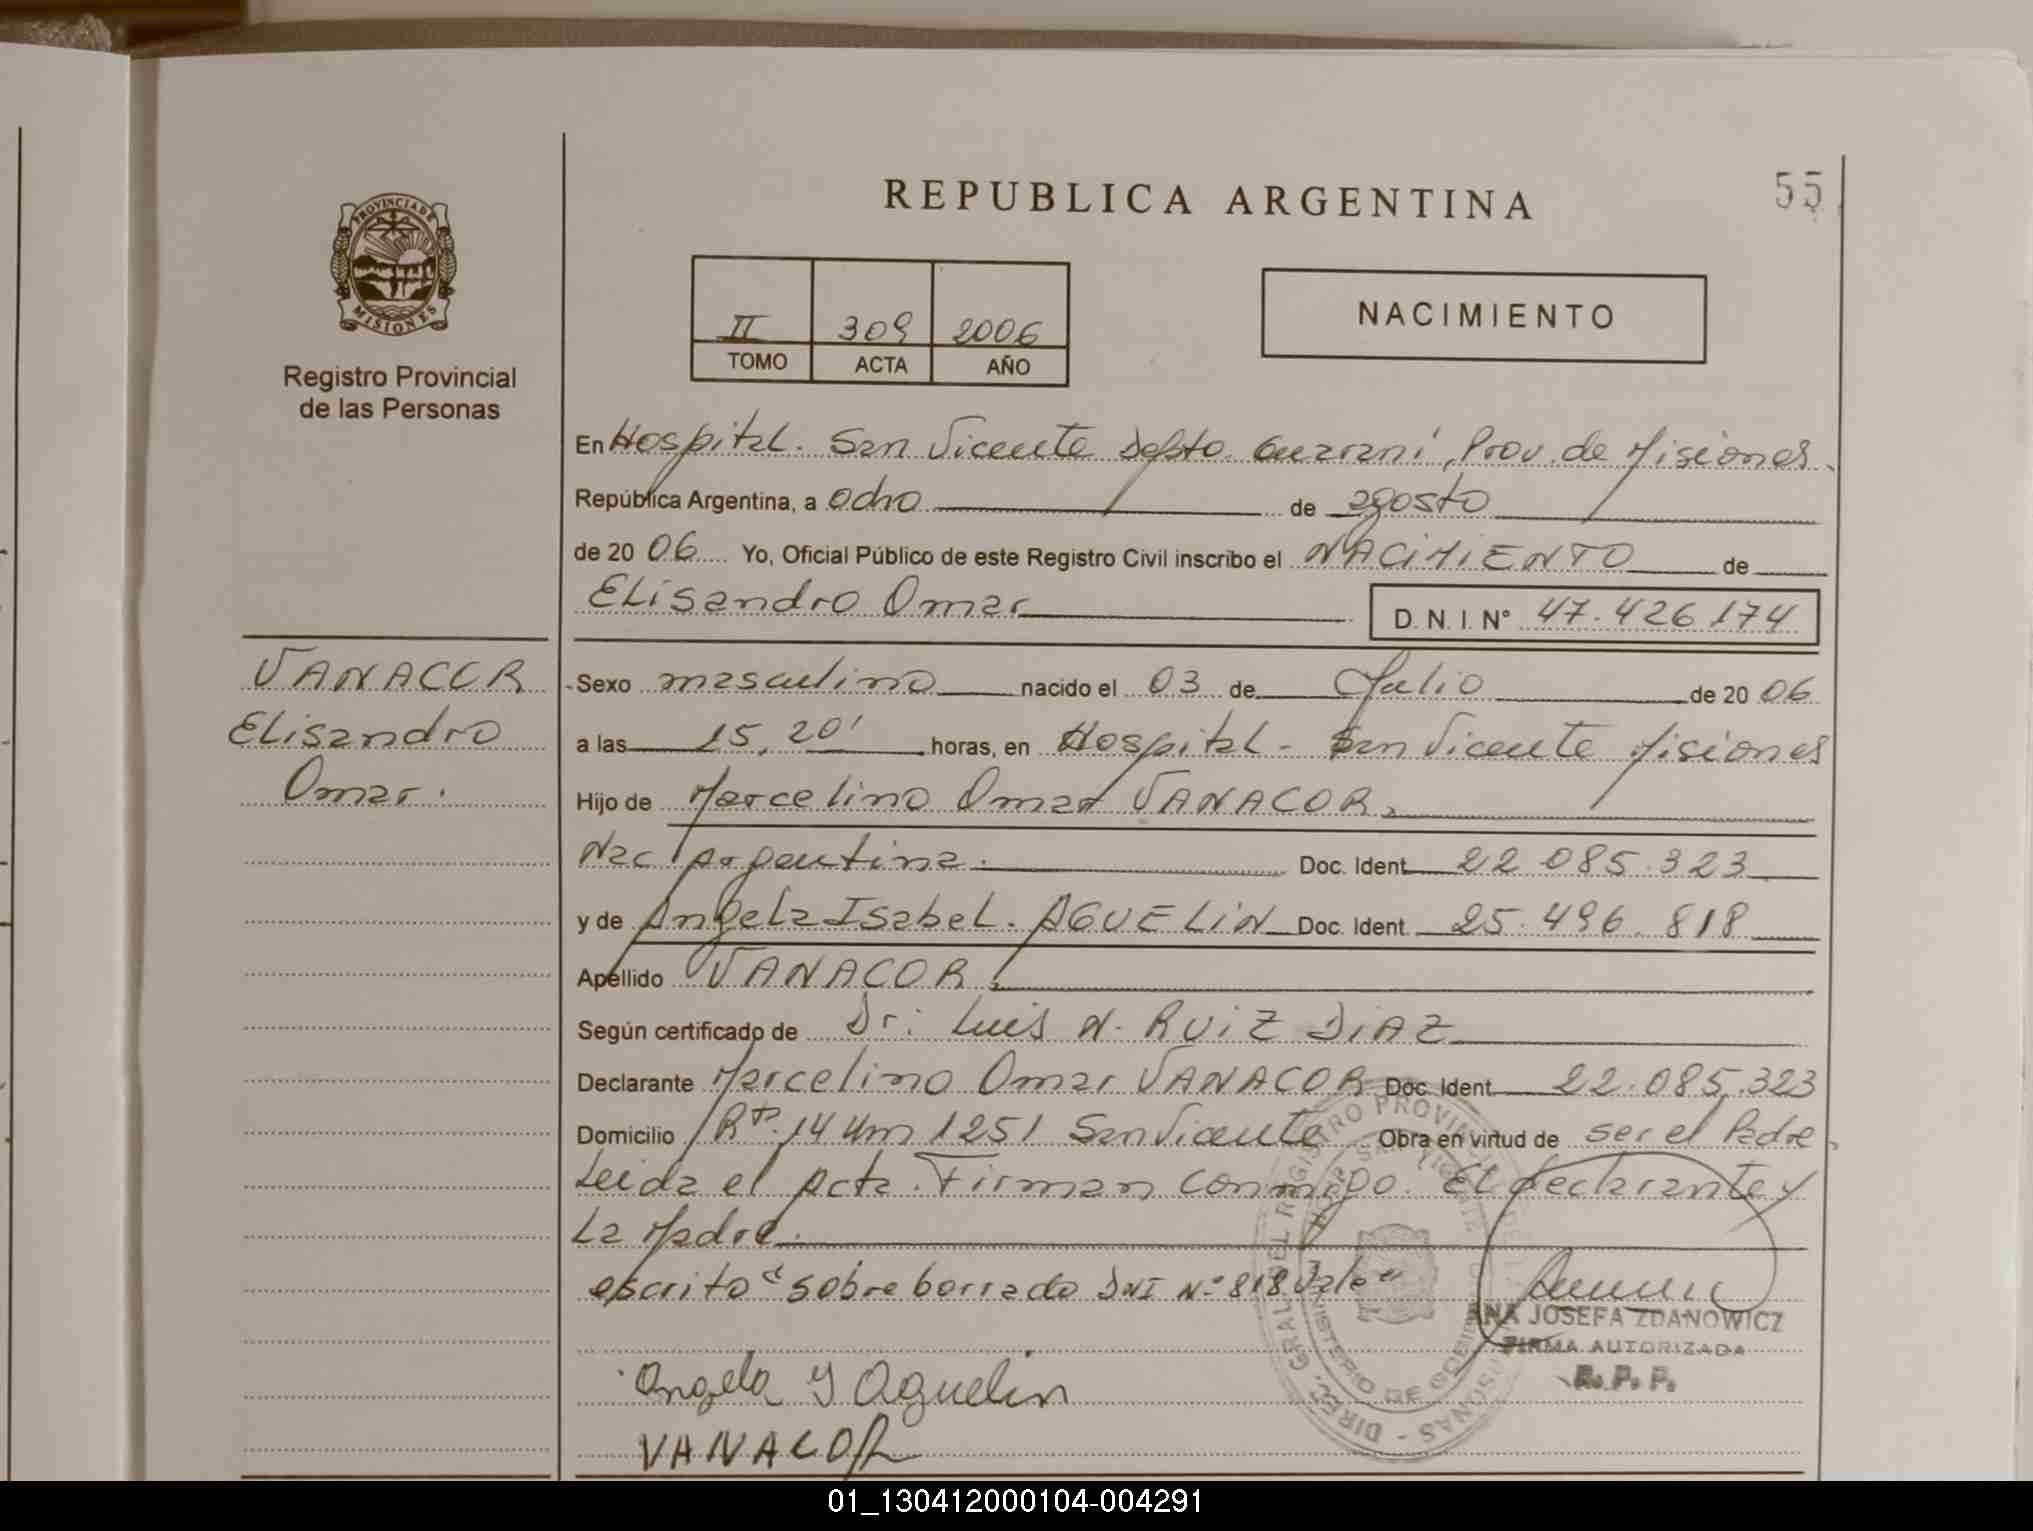 REPUBLICA ARGENTINA
55
PROVINCIA DE
MISIONES
Registro Provincial
de las Personas
II 309 2006
TOMO ACTA AÑO
NACIMIENTO
En Hospital. San Vicente Depto. Guarani, Prov. de Misiones.
República Argentina, a ocho de agosto
de 20 06 Yo, Oficial Público de este Registro Civil inscribo el NACIMIENTO de
Elisandro Omar
D. N. I. Nº 47.426.174
VANACOR
Elisandro
Omar.
Sexo masculino nacido el 03 de Julio de 20 06
a las 15,20' horas, en Hospital - San Vicente Misiones
Hijo de Marcelino Omar VANACOR,
Nac Argentina. Doc. Ident. 22.085.323
y de Angela Isabel. AGUELIN Doc. Ident. 25.496.818
Apellido VANACOR,
Según certificado de Dr: Luis N. RUIZ DIAZ
Declarante Marcelino Omar VANACOR Doc. Ident. 22.085.323
Domicilio Rta. 14 Km 1251 San Vicente Obra en virtud de ser el Padre,
Leida el acta. Firman conmigo. El declarante y
La Madre.
escrito "sobre borrado DNI Nº 818 Vale"
ANA JOSEFA ZDANOWICZ
FIRMA AUTORIZADA
R. P. P.
Angela Y Aguelin
VANACOR
01_130412000104-004291